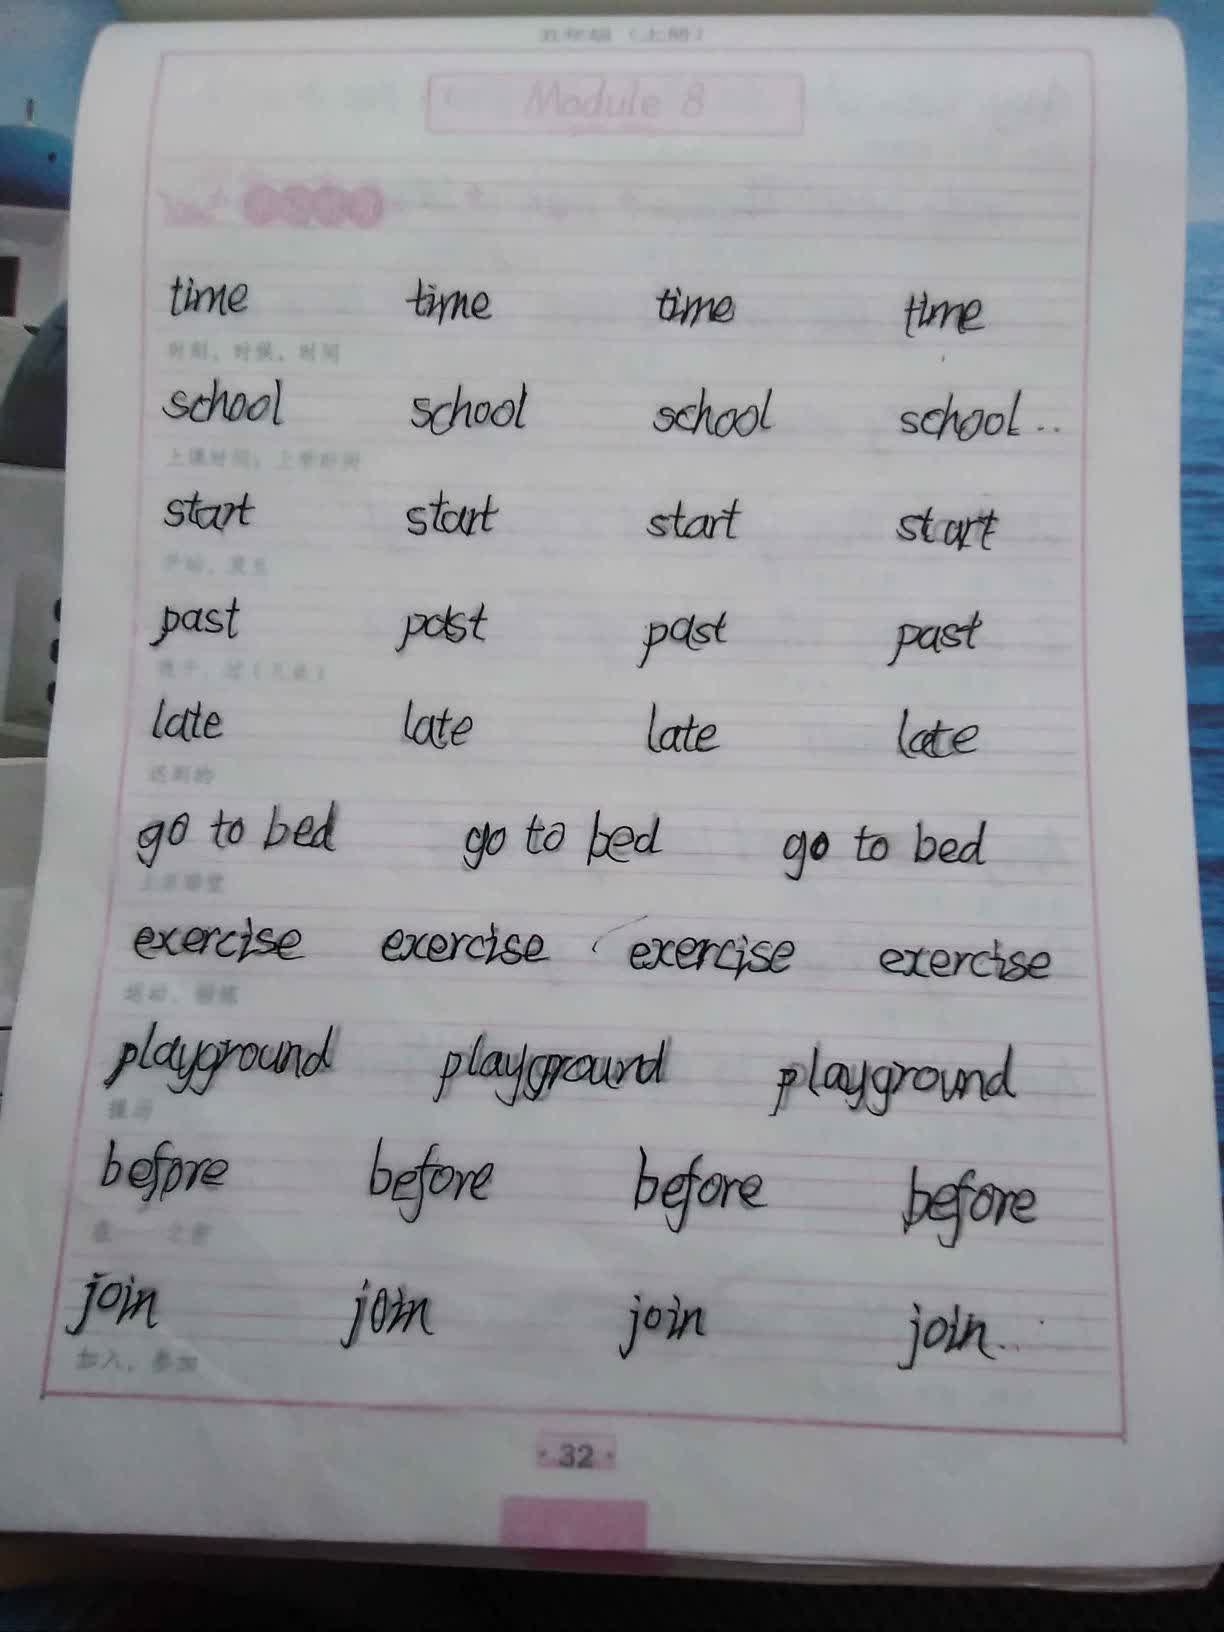 五年级（上册）
Module 8
time time time time
时刻，时候，时间
school school school school
上课时间；上学时间
start start start start
开始，发生
past past past past
晚于，过（几点）
late late late late
迟到的
go to bed go to bed go to bed
上床睡觉
exercise exercise exercise exercise
运动，锻炼
playground playground playground
操场
before before before before
在……之前
join join join join
加入，参加
· 32 ·